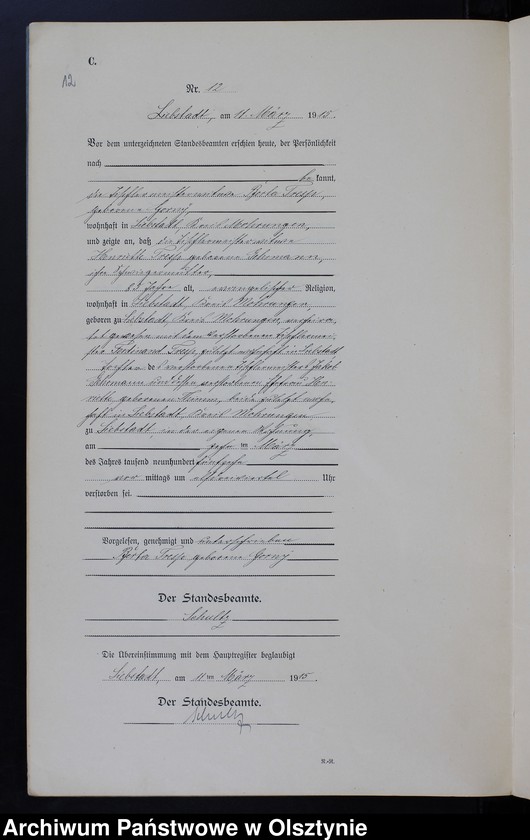 C.
12
Nr. 12
Liebstadt, am 11 März 1915.
Vor dem unterzeichneten Standesbeamten erschien heute, der Persönlichkeit
nach
be kannt,
die Tischlermeisterwitwe Berta
geborene Gorny,
wohnhaft in Liebstadt, Kreis Mohrungen,
und zeigte an, daß die Tischlermeisterwitwe
Henriette geborene Ehlmann,
ihre Schwiegermutter,
83 Jahre alt, evangelischer Religion,
wohnhaft in Liebstadt, Kreis Mohrungen,
geboren zu Liebstadt, Kreis Mohrungen, verheira-
tet gewesen mit dem verstorbenen Tischlermei-
ster Ferdinand zuletzt wohnhaft in Liebstadt
Tochter des verstorbenen Tischlermeisters Jakob
und dessen verstorbenen Ehefrau Hen-
riette geborenen beide zuletzt wohn-
haft in Liebstadt Kreis Mohrungen
zu Liebstadt, in der eigenen Wohnung,
am zehn ten März
des Jahres tausend neunhundert fünfzehn
vor mittags um Uhr
verstorben sei.
Vorgelesen, genehmigt und unterschrieben
Berta geborene Gorny
Der Standesbeamte.
Schultz
Die Übereinstimmung mit dem Hauptregister beglaubigt
Liebstadt, am 11 ten März 1915.
Der Standesbeamte.
Schultz
Archiwum Państwowe w Olsztynie